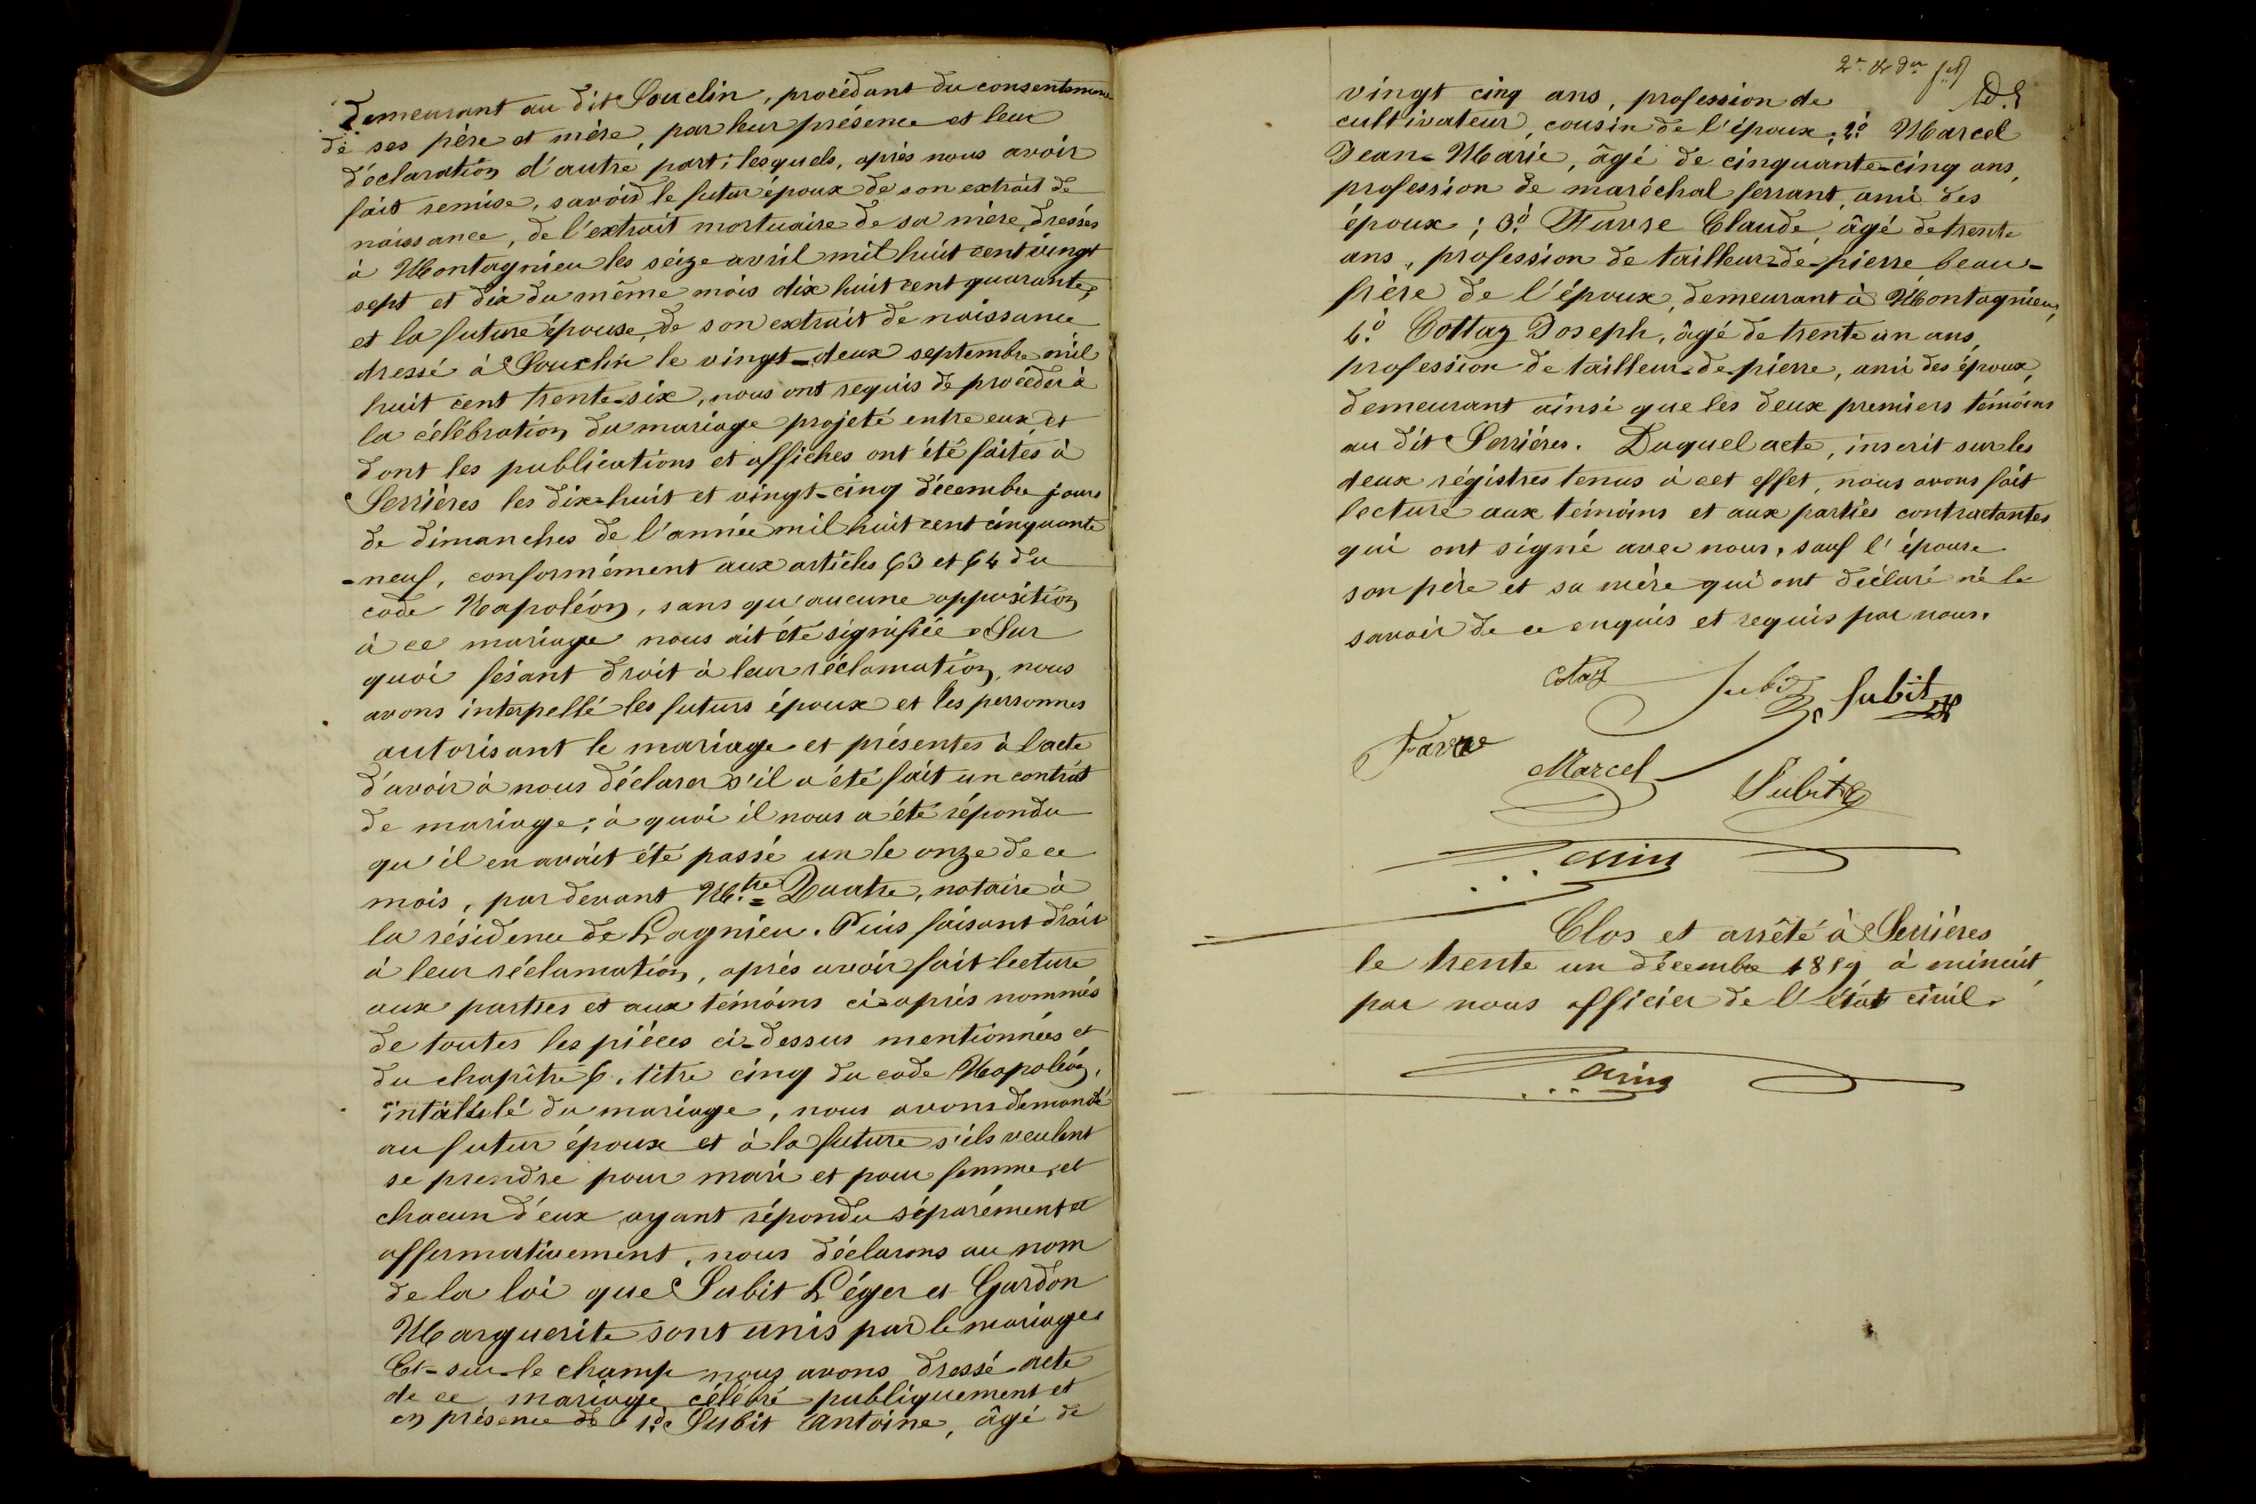 demeurant au dit Souclin, procédant du consentement
de ses père et mère, par leur présence et leur
déclaration d'autre part; lesquels, après nous avoir
fait remise, savoir le futur époux de son extrait de
naissance, de l'extrait mortuaire de sa mère, dressés
à Montagnieu les seize avril mil huit cent vingt
sept et dix du même mois dix huit cent quarante,
et la future épouse, de son extrait de naissance
dressé à Souclin le vingt-deux septembre mil
huit cent trente-six, nous ont requis de procéder à
la célébration du mariage projeté entre eux et
dont les publications et affiches ont été faites à
Serrières les dix-huit et vingt-cinq décembre jours
de dimanches de l'année mil huit cent cinquante
-neuf, conformément aux articles 63 et 64 du
code Napoléon, sans qu'aucune opposition
à ce mariage nous ait été signifiée. Sur
quoi fesant droit à leur réclamation, nous
avons interpellé les futurs époux et les personnes
autorisant le mariage et présentes à l'acte
d'avoir à nous déclarer s'il a été fait un contrat
de mariage; à quoi il nous a été répondu
qu'il en avait été passé un le onze de ce
mois, par devant M.tre Duatre, notaire à
la résidence de Lagnieu. Puis faisant droit
à leur réclamation, après avoir fait lecture
aux parties et aux témoins ci-après nommés
de toutes les pièces ci-dessus mentionnées et
du chapitre 6, titre cinq du code Napoléon,
intitulé du mariage, nous avons demandé
au futur époux et à la future s'ils veulent
se prendre pour mari et pour femme, et
chacun d'eux ayant répondu séparément et
affermativement, nous déclarons au nom
de la loi que Subit Léger et Gardon
Marguerite sont unis par le mariage.
Et-sur-le champ nous avons dressé acte
de ce mariage célébré publiquement et
en présence de 1.° Subit Antoine, âgé de
2e & der
vingt cinq ans, profession de
cultivateur, cousin de l'époux; 2.° Marcel
Jean-Marie, âgé de cinquante-cinq ans,
profession de maréchal ferrant, ami des
époux; 3.° Favre Claude, âgé de trente
ans, profession de tailleur-de-pierre, beau-
frère de l'époux, demeurant à Montagnieu,
4.° Cottaz Joseph, âgé de trente un ans,
profession de tailleur-de-pierre, ami des époux,
demeurant ainsi que les deux premiers témoins
au dit Serrières. Duquel acte, inscrit sur les
deux régistres tenus à cet effet, nous avons fait
lecture aux témoins et aux parties contractantes
qui ont signé avec nous, sauf l'épouse
son père et sa mère qui ont déclaré ne le
savoir de ce enquis et requis par nous.
Cotaz Subit Subit
Favre
Marcel Subit
Clos et arrêté à Serrières
le trente un décembre 1859 à minuit,
par nous officier de l'état civil.